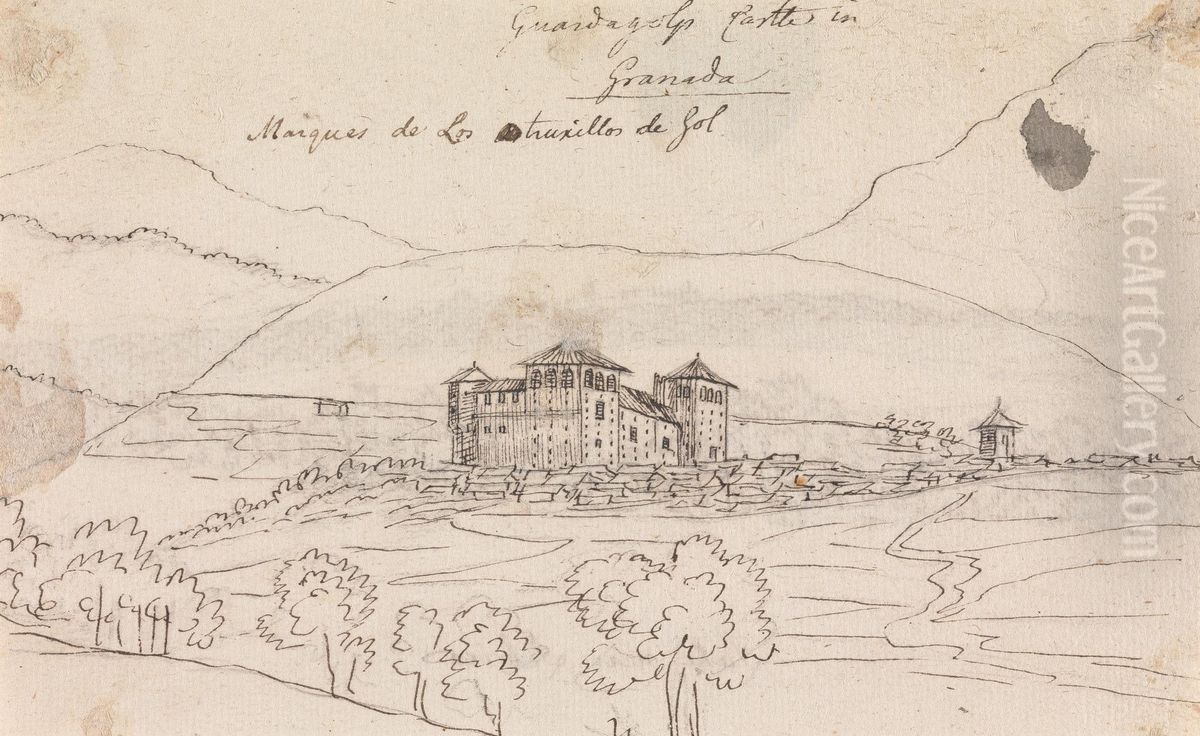 Guardagolp Castle in
Granada
Marques de Los truxillos de Gol
NiceArtGallery.com